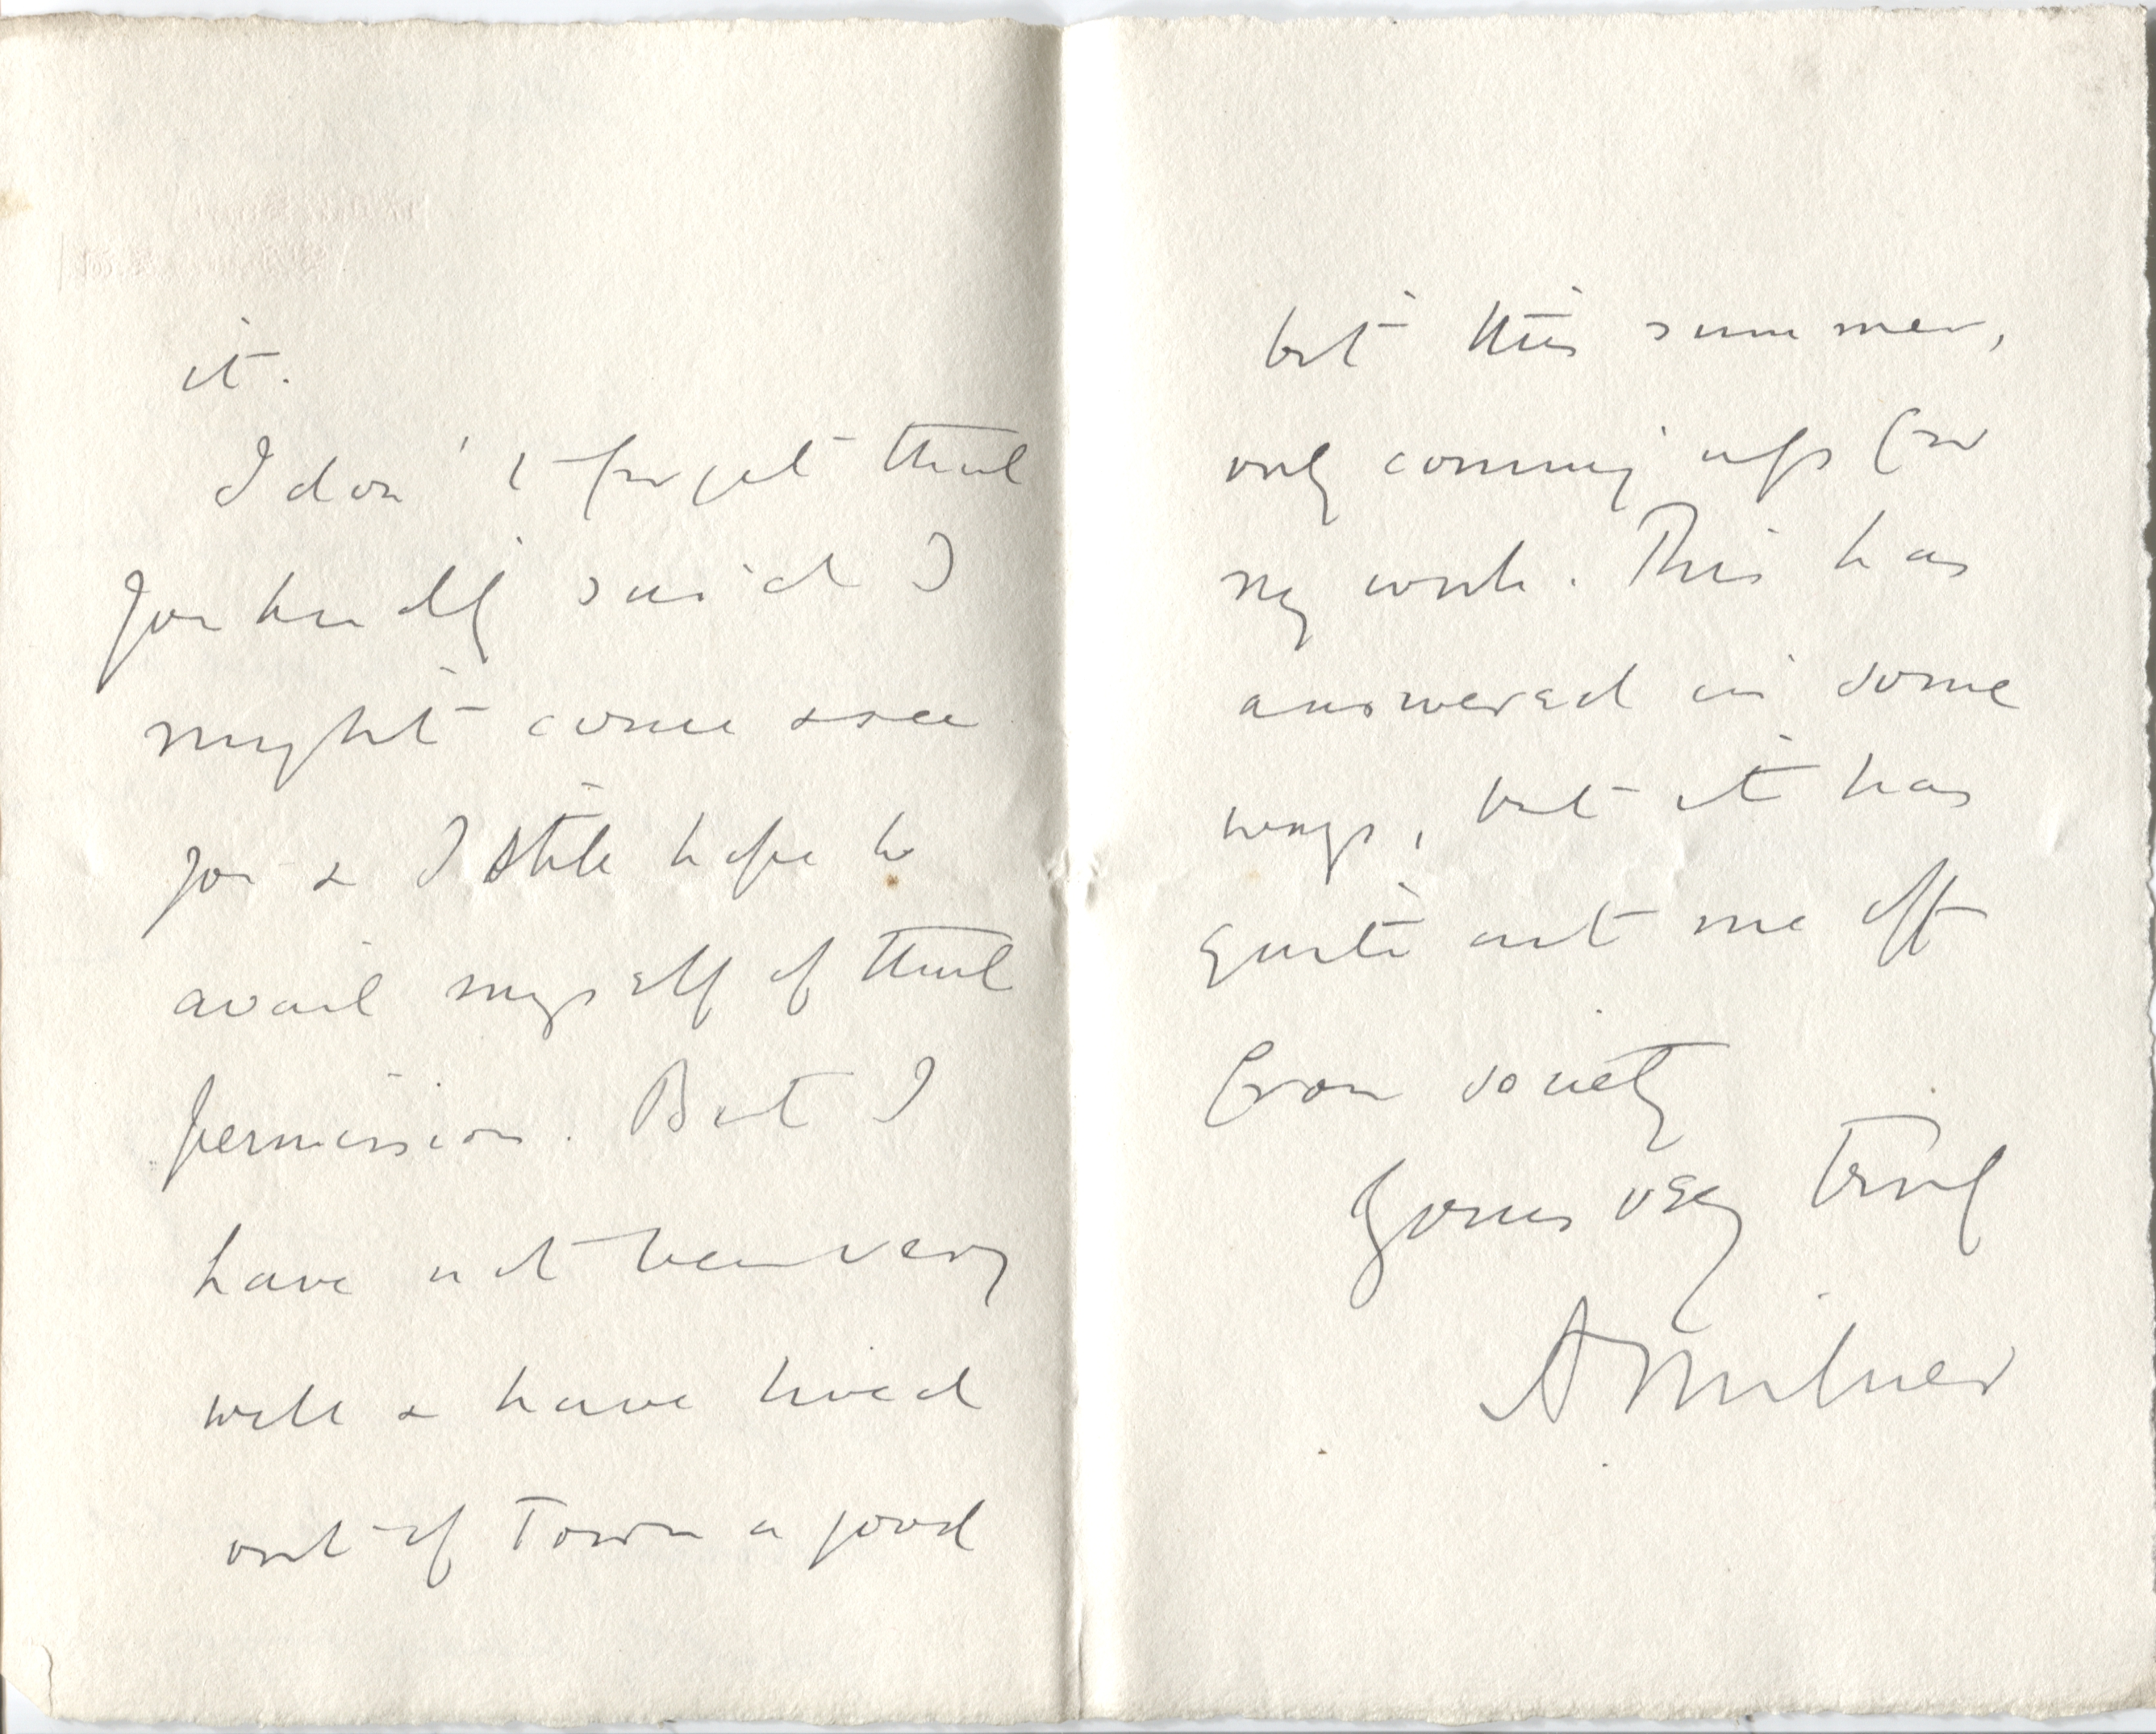 it.
I don't forget that
you kindly said I
might come & see
you & I still hope to
avail myself of that
permission. But I
have not been very
well & have lived
out of Town a good
bit this summer,
only coming up for
my work. This has
answered in some
ways, but it has
quite cut me off
from society
Yours very truly
A Milner